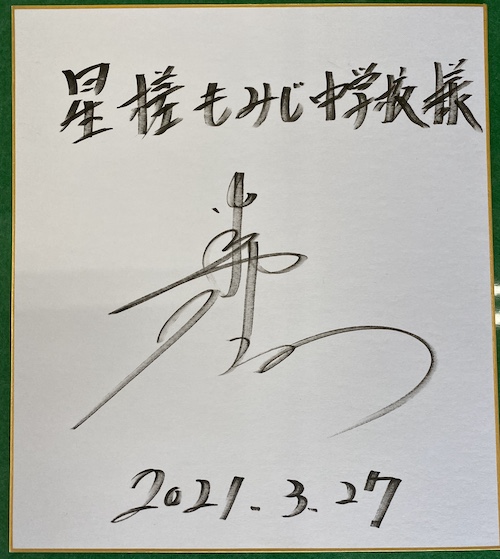 星槎もみじ中学校様
2021.3.27